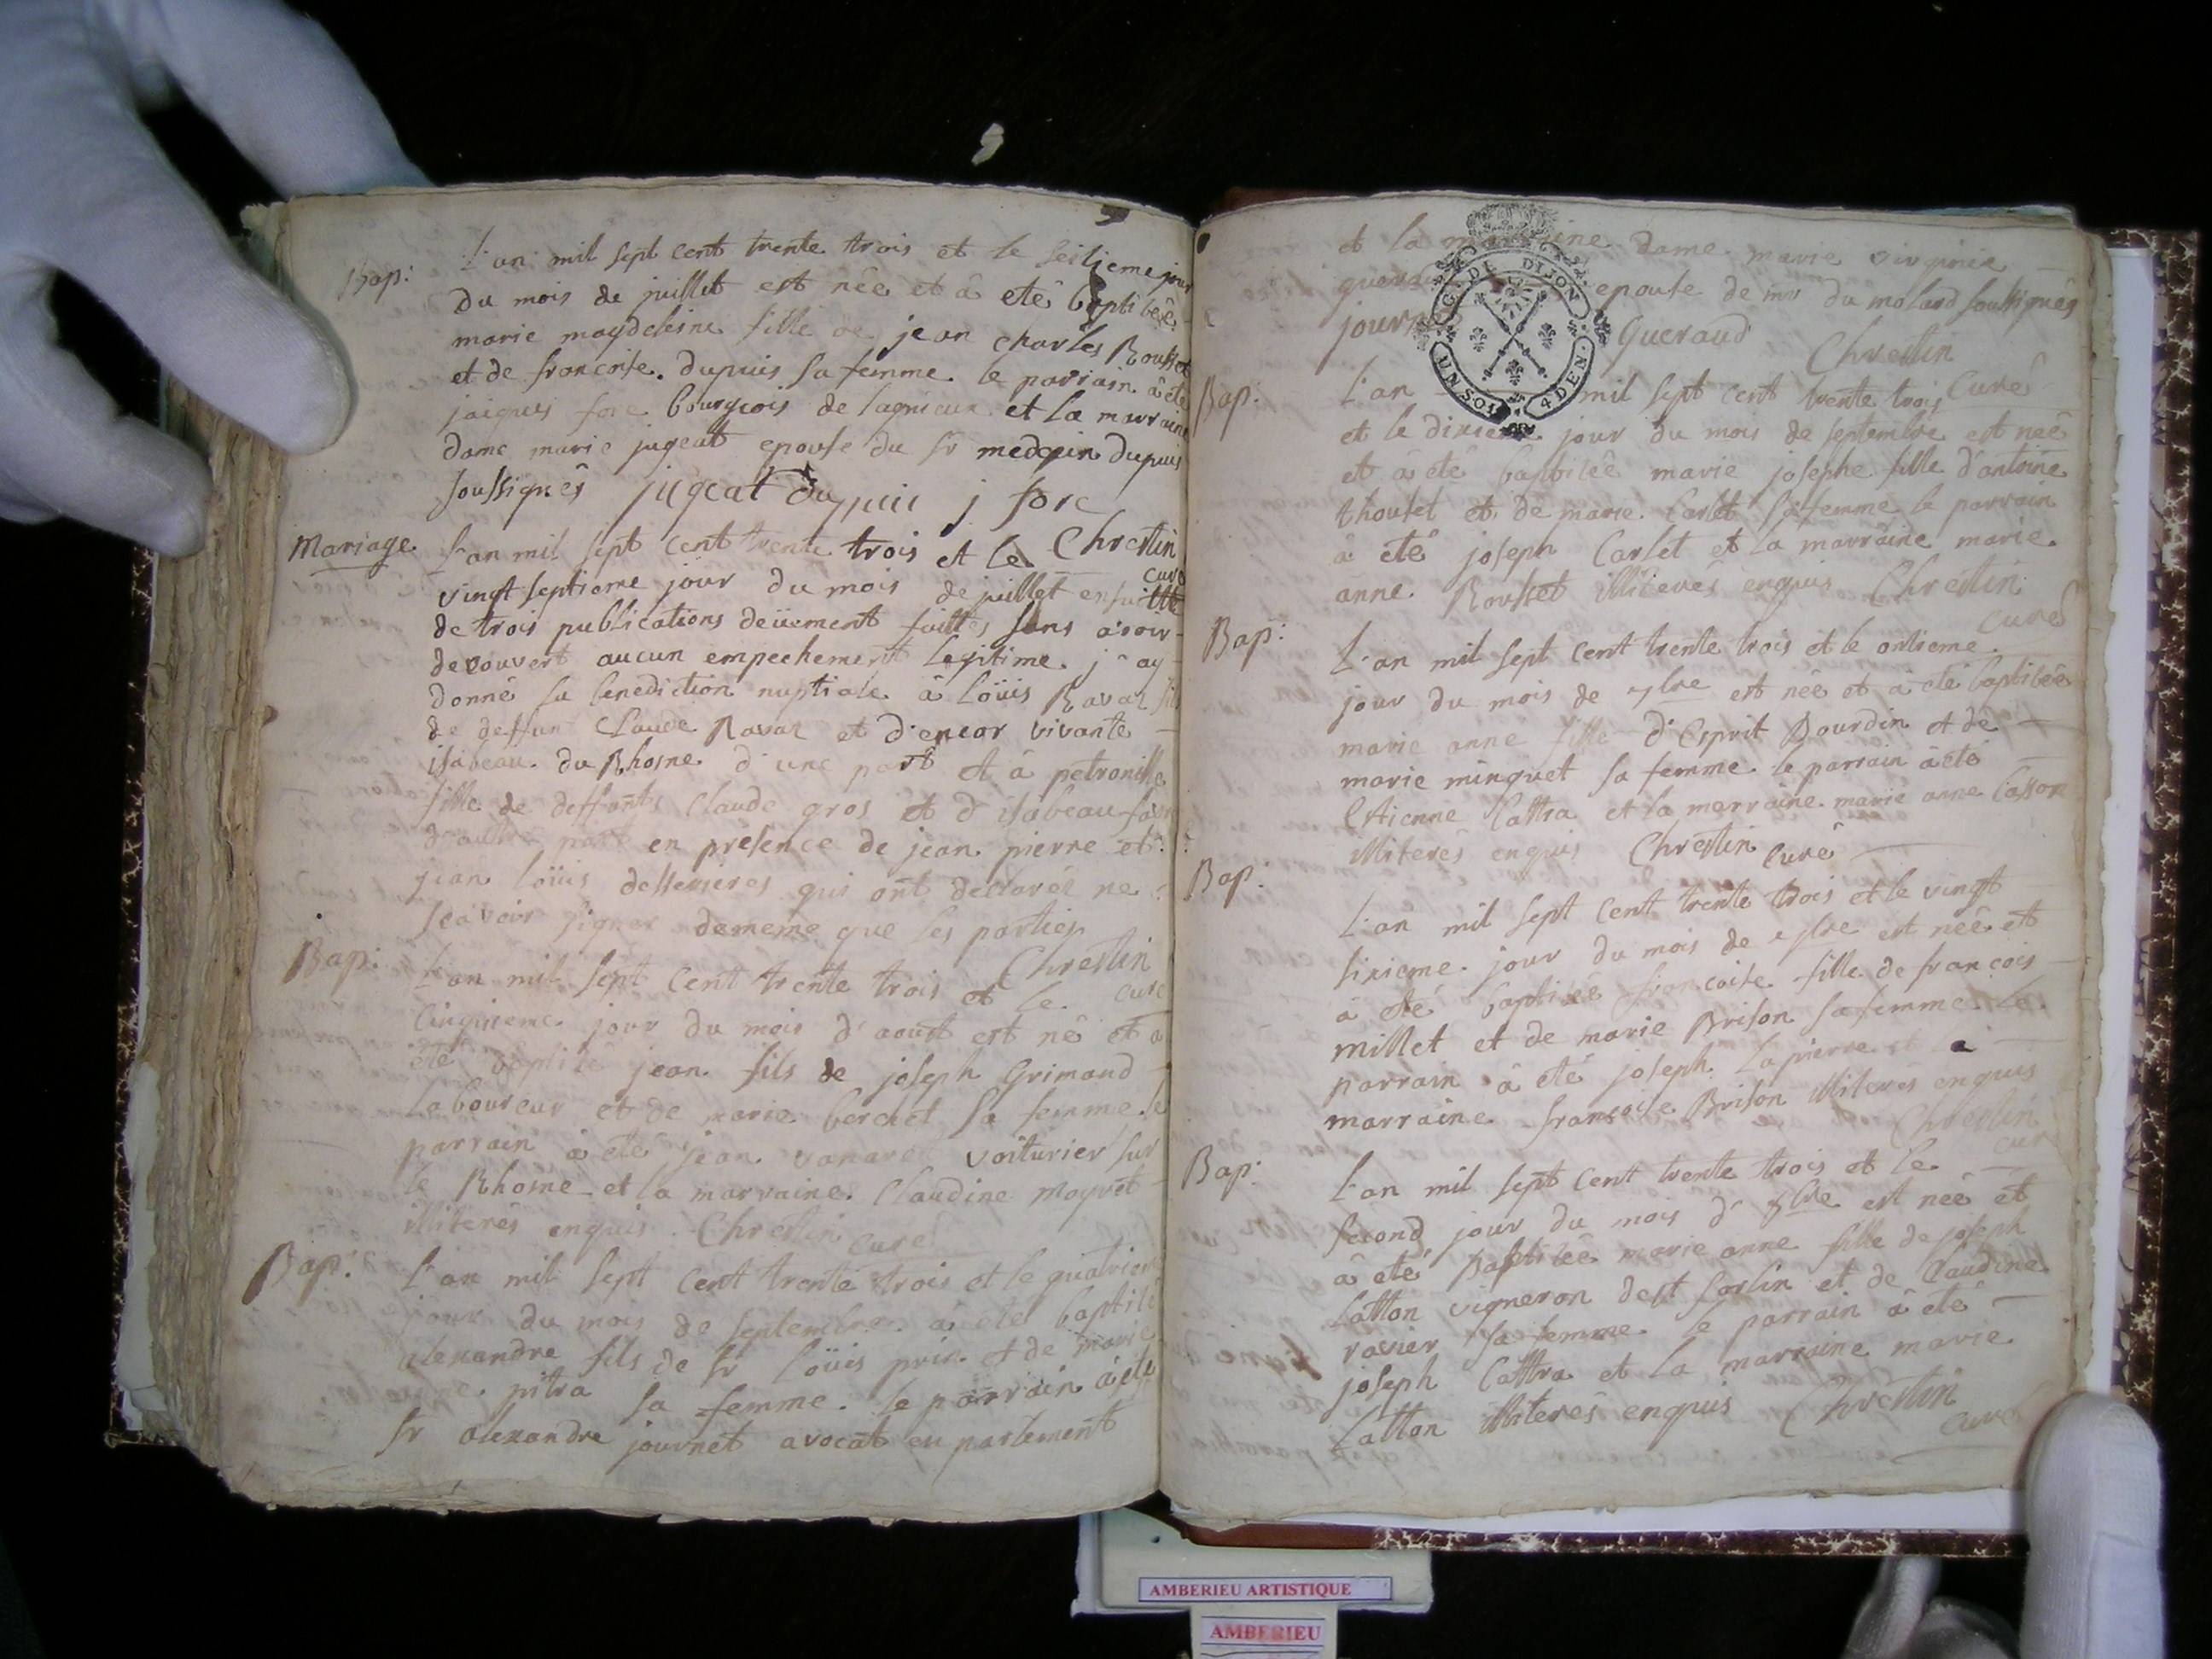 Bap: L'an mil sept cent trente trois et le seizieme jour
du mois de juillet est née et à eté baptisée
marie magdeleine fille de jean charles Rousset
et de francoise dupuis sa femme le parrain à eté
jaiques fore bourgeois de lagnieux et la marraine
dame marie jugeatt epouse du sr medecin dupuis
soussignés jugeat dupuis j fore
Chrestin
curé
Mariage L'an mil sept cent trente trois et le
vingt septieme jour du mois de juillet ensuitte
de trois publications deüement faittes sans avoir
decouvert aucun empechement legitime j'ay
donné la benediction nuptiale à loüis Ravaz fils
de deffunt Claude Ravaz et d'encor vivante
isabeau du Rhosne d'une part et à petronille
fille de deffunts Claude gros et d'isabeau
d'autre part en presence de jean pierre et
jean loüis desserieres qui ont declaréz ne
scavoir signer dememe que les parties
Chrestin
curé
Bap: L'an mil sept cent trente trois et le
cinquieme jour du mois d'aoust est né et a
eté baptisé jean fils de joseph Grimaud
laboureur et de marie berchet sa femme le
parrain à eté jean vanarel voiturier sur
le Rhosne et la marraine Claudine mayret
illiterés enquis Chrestin curé
Bap: L'an mil sept cent trente trois et le quatriem
jour du mois de septembre à eté baptisé
alexandre fils de sr loüis prin et de marie
pitra sa femme le parrain à eté
sr alexandre journet avocat en parlement
et la marraine dame marie virginie
epouse de mr du molard soussignés
journet Gueraud Chrestin
Curé
GR. DE DIJON
UN SOL 4 DEN.
Bap: L'an mil sept cent trente trois
et le dixieme jour du mois de septembre est née
et à été baptisée marie josephe fille d'antoine
thouset et de marie Carlet sa femme le parrain
à eté joseph Carlet et la marraine marie
anne Rousset illiterés enquis Chrestin
curé
Bap: L'an mil sept cent trente trois et le onzieme
jour du mois de 7bre est née et à eté baptisée
marie anne fille d'Esprit Bourdin et de
marie minguet sa femme le parrain à eté
Estienne Lattra et la marraine marie anne Casson
illiterés enquis Chrestin curé
Bap: L'an mil sept cent trente trois et le vingt
sixieme jour du mois de 7bre est née et
à eté baptisée francoise fille de francois
millet et de marie Brison sa femme le
parrain à eté joseph Lapierre et la
marraine francoise Brison illiterés enquis
Chrestin
curé
Bap: L'an mil sept cent trente trois et le
second jour du mois d'8bre est née et
à eté Baptisée marie anne fille de joseph
Latton vigneron de st sorlin et de Claudine
ravier sa femme le parrain à eté
joseph Lattra et la marraine marie
Latton illiterés enquis Chrestin
curé
AMBERIEU ARTISTIQUE
AMBERIEU